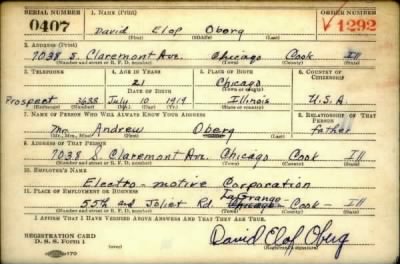 SERIAL NUMBER 1. NAME (Print) ORDER NUMBER
0407 David Elof Oberg 1292
(First) (Middle) (Last)
2. ADDRESS (Print)
7038 S. Claremont Ave. Chicago Cook Ill
(Number and street or R. F. D. number) (Town) (County) (State)
3. TELEPHONE 4. AGE IN YEARS 5. PLACE OF BIRTH 6. COUNTRY OF CITIZENSHIP
21 Chicago
DATE OF BIRTH (Town or county)
Prospect 3638 July 10 1919 Illinois U.S.A.
(Exchange) (Number) (Mo.) (Day) (Yr.) (State or country)
7. NAME OF PERSON WHO WILL ALWAYS KNOW YOUR ADDRESS 8. RELATIONSHIP OF THAT PERSON
Mr. Andrew Oberg father
(Mr., Mrs., Miss) (First) (Middle) (Last)
9. ADDRESS OF THAT PERSON
7038 S. Claremont Ave. Chicago Cook Ill
(Number and street or R. F. D. number) (Town) (County) (State)
10. EMPLOYER'S NAME
Electro-motive Corporation
11. PLACE OF EMPLOYMENT OR BUSINESS LaGrange
55th and Joliet Rd. Chicago Cook Ill
(Number and street or R. F. D. number) (Town) (County) (State)
I AFFIRM THAT I HAVE VERIFIED ABOVE ANSWERS AND THAT THEY ARE TRUE.
REGISTRATION CARD
D. S. S. Form 1 David Elof Oberg
(Registrant's signature)